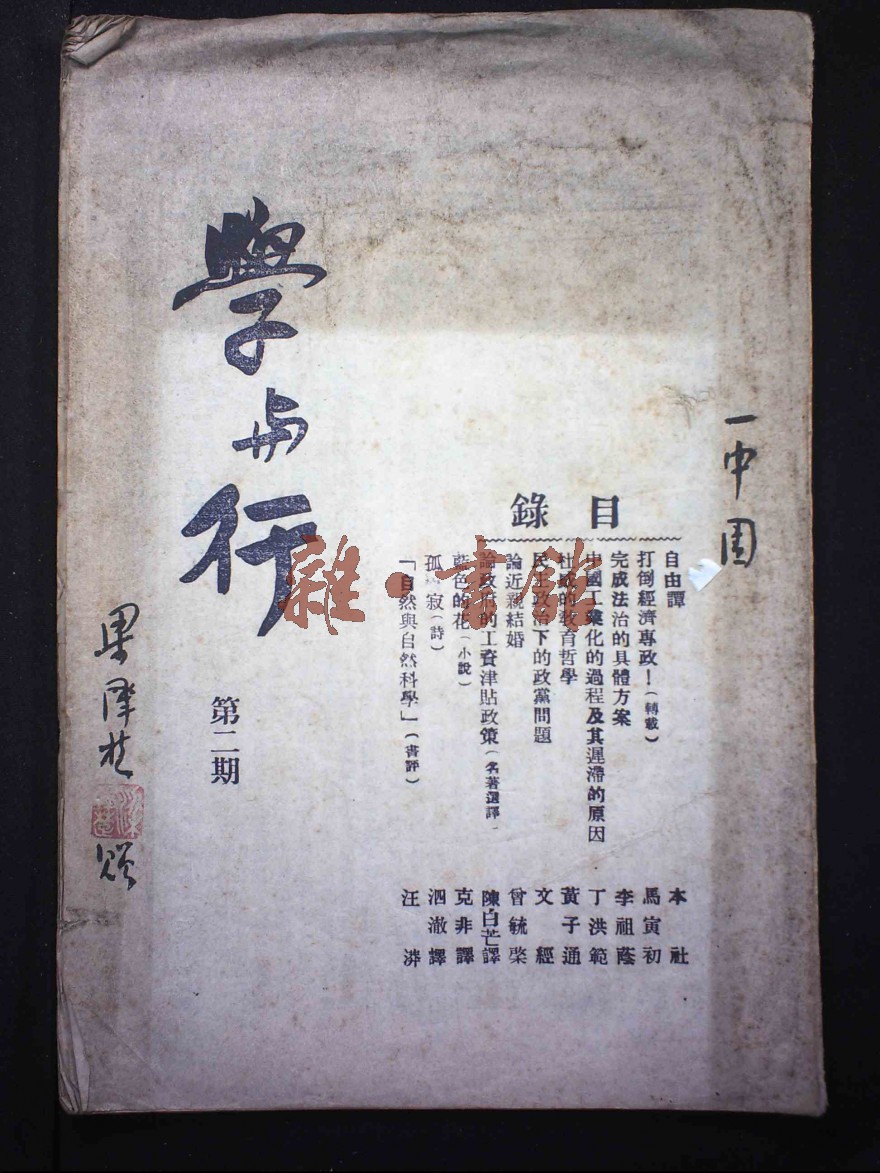 一中
目錄
自由譚 本社
打倒經濟專政！（轉載） 馬寅初
完成法治的具體方案 李祖蔭
中國工業化的過程及其遲滯的原因 丁洪範
杜威的教育哲學 黃子通
民主政治下的政黨問題 文經
論近親結婚 曾毓棨
論政府的工資津貼政策（名著選譯） 陳白芒譯
藍色的花（小說） 克非譯
孤寂（詩） 泗澈譯
「自然與自然科學」（書評） 汪漭
學与行
第二期
雜·書館